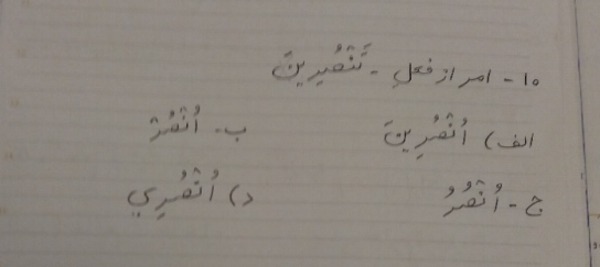 ۱۰- امر از فعلِ - تَنْصُرِینَ
الف) اُنْصُرِینَ ب- اُنْصُرْ
ج- اُنْصُرُ د) اُنْصُرِي